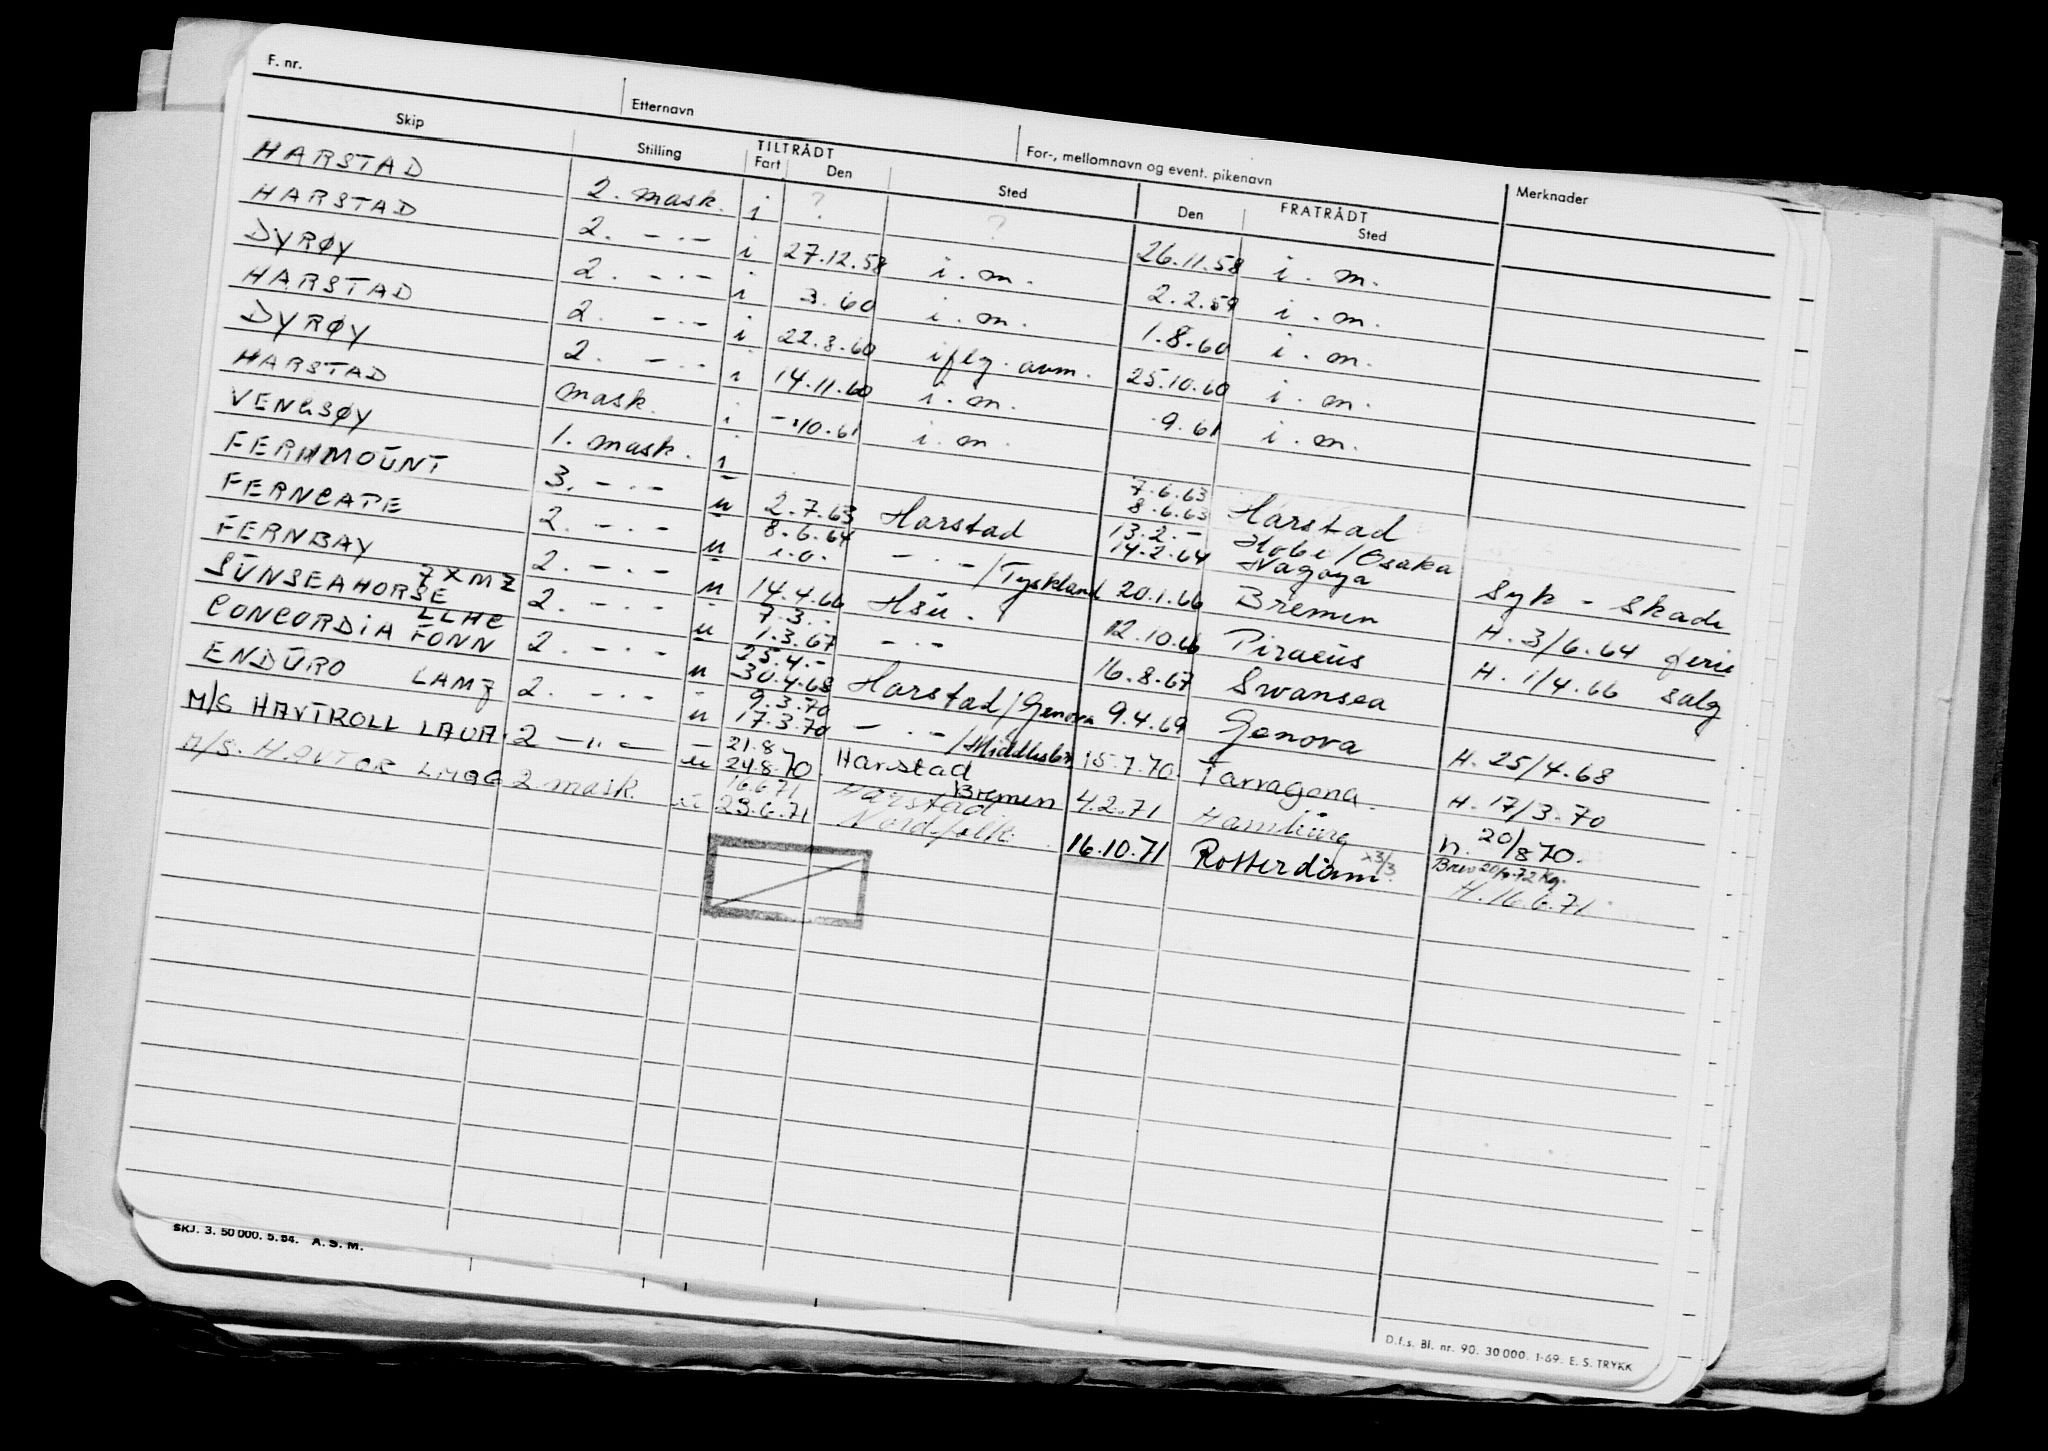 F. nr.
Etternavn
For-, mellomnavn og event. pikenavn
Skip Stilling TILTRÅDT Fart Den Sted FRATRÅDT Den Sted Merknader
HARSTAD 2. mask. i ? ? 26.11.58 i. m.
HARSTAD 2. -.- i 27.12.58 i. m. 2.2.59 i. m.
DYRØY 2. -.- i 3.60 i. m. 1.8.60 i. m.
HARSTAD 2. -.- i 22.8.60 i flg. avm. 25.10.60 i. m.
DYRØY 2. -.- i 14.11.60 i. m. .9.61 i. m.
HARSTAD mask. i -.10.61 i. m.
VENGSØY 1. mask. i 7.6.63 8.6.63 Harstad
FERNMOUNT 3. -.- u 2.7.63 Harstad 13.2.- 14.2.64 Kobe/Osaka Nagoya Syk - skade
FERNCAPE 2. -.- u 8.6.64 i.o. -.-/Tyskland 20.1.66 Bremen H. 3/6.64 ferie
FERNBAY 2. -.- u 14.4.66 Hsu. 12.10.66 Piraeus H. 1/4.66 salg
SUNSEAHORSE 7XMZ 2. -.- u 7.3.- 1.3.67 -.- 16.8.67 Swansea
CONCORDIA FONN LLHC 2. -.- u 25.4.- 30.4.68 Harstad/Genova 9.4.69 Genova H. 25/4.68
ENDURO LAMZ 2. -.- u 9.3.70 17.3.70 -.-/Middlesbr 15.7.70 Tarragona. H. 17/3.70
M/S HAVTROLL LAUA 2 -"- u 21.8 24.8.70 Harstad Bremen 4.2.71 Hamburg h. 20/8 70.
M/S. HAVTOR LMGG 2 mask. u 16.6.71 23.6.71 Harstad Nordfolk 16.10.71 Rotterdam. Brev 20/9.72 Kg. H. 16.6.71
SKJ. 3. 50 000. 5.54. A. S. M.
D.f.s. Bl. nr. 90. 30 000. 1-69. E. S. TRYKK